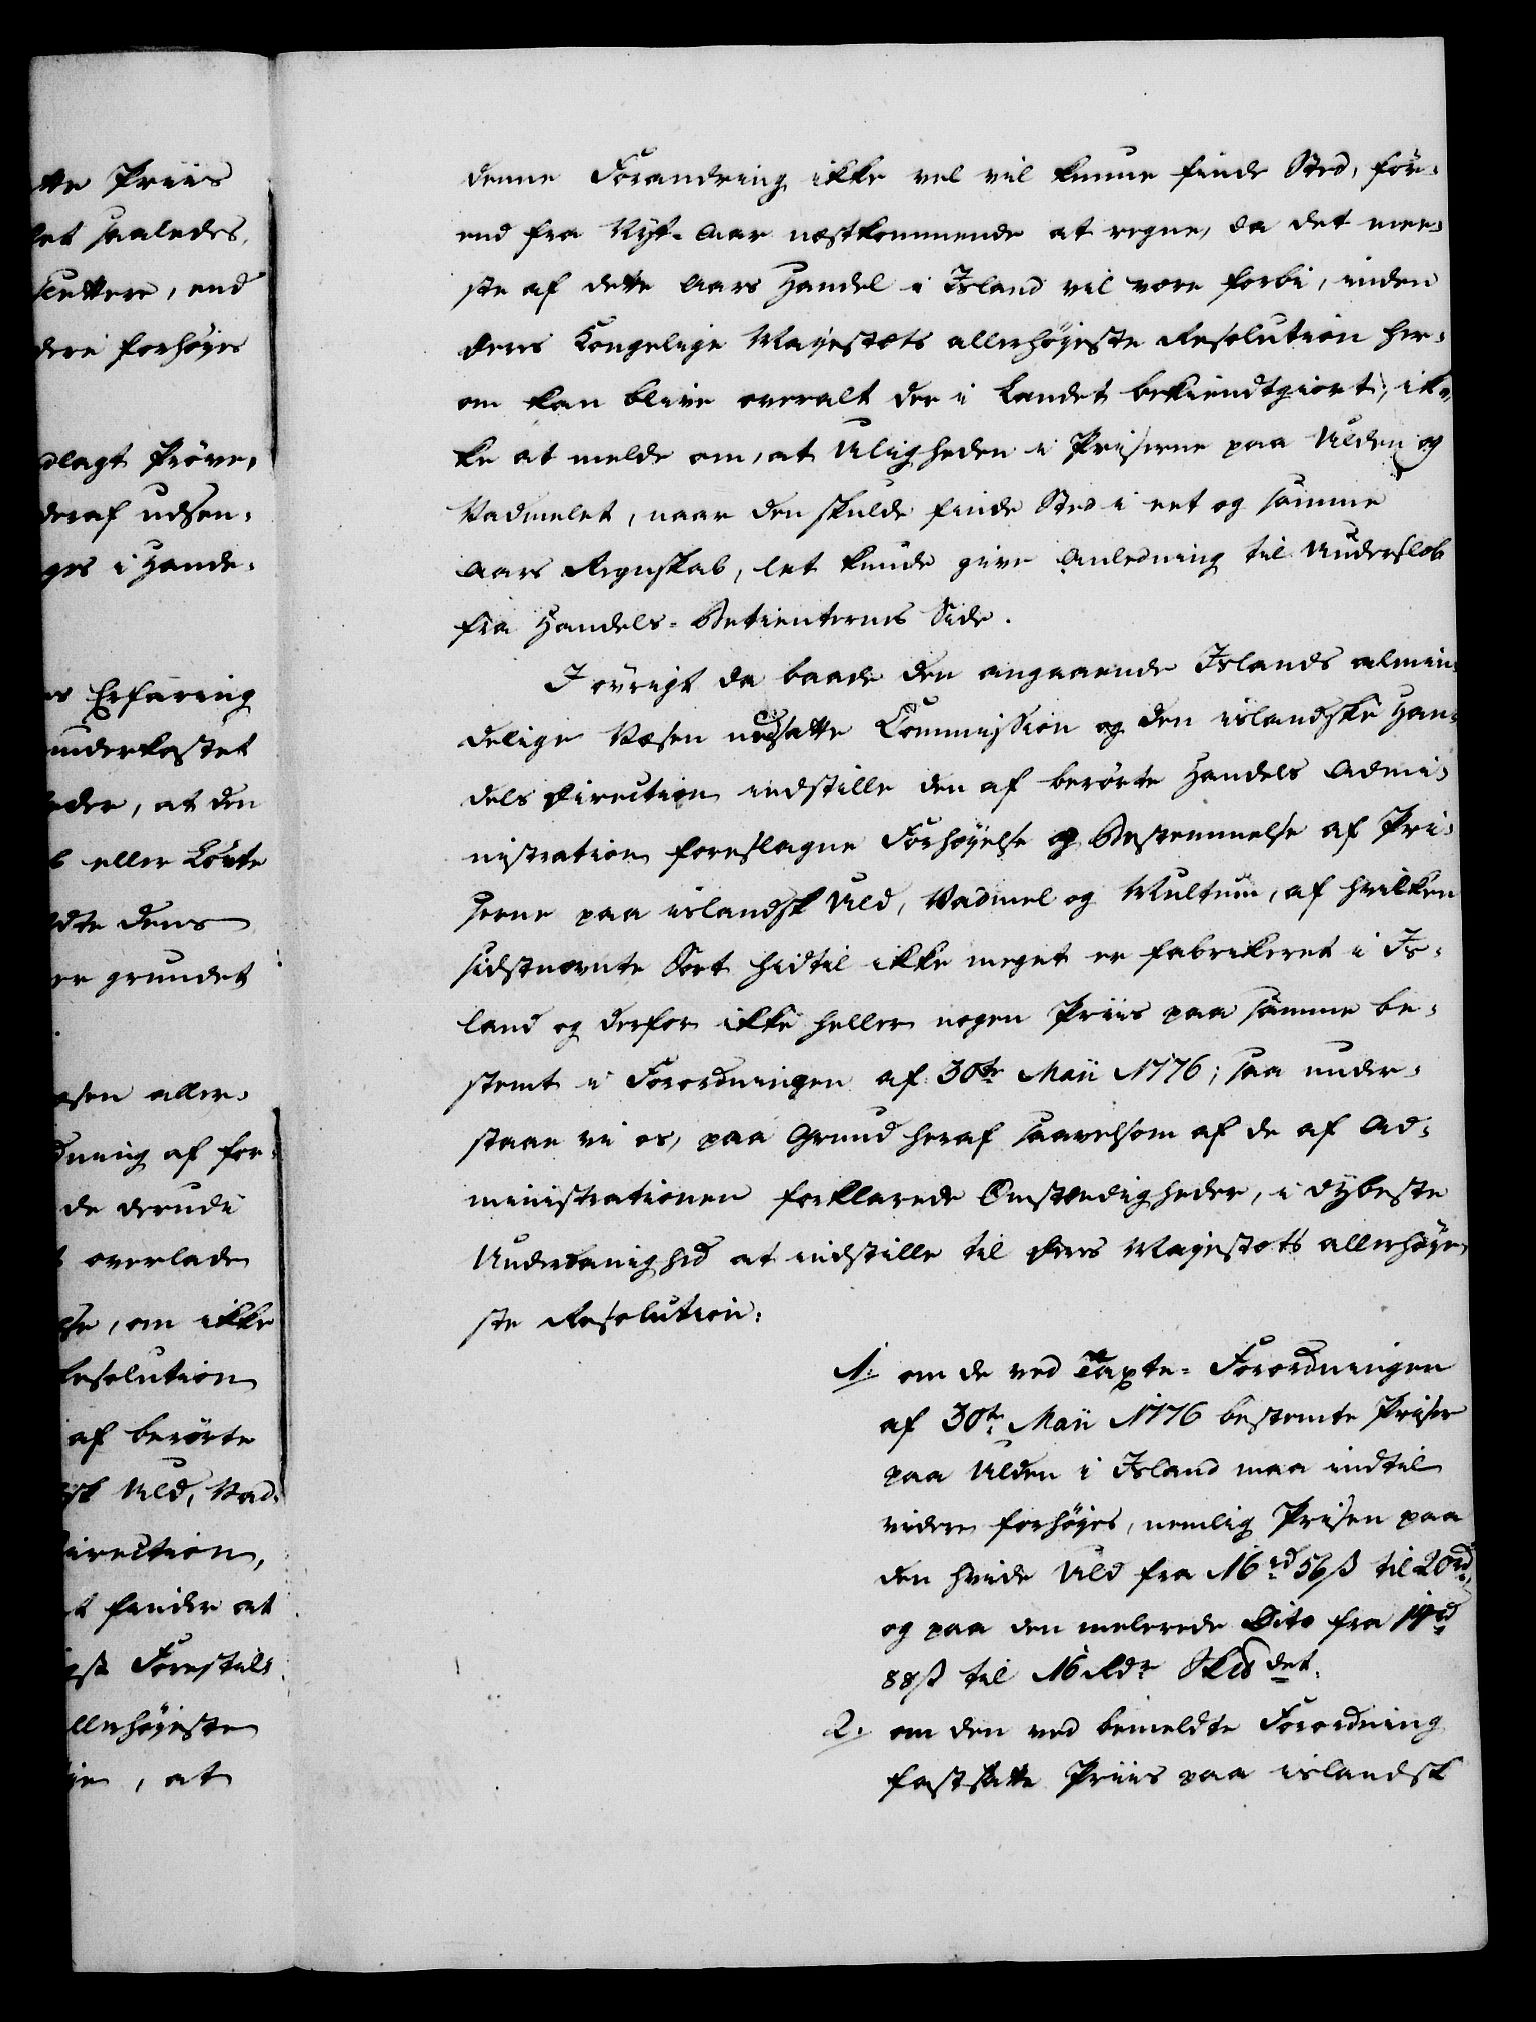 tte Priis
let saaledes,
scuttere, end
dere forhöyes
dlagt Pröve,
deraf udsen-
ges i Hande-
es Erfaring
underkastet
eder, at den
b eller Lövte
ldte dens
er grundet
esen aller-
dning af for-
de derude
t overlade
else, om ikke
Resolution
af berörte
dsk Uld, Vad-
Direction,
t finder at
igst Forestil-
allerhöjeste
je, at
denne Forandring ikke vel vil kunne finde Sted, för-
end fra Nyt-Aar nestkommende at regne, da det mee-
ste af dette Aars Handel i Island vil være forbi, inden
Deres Kongelige Majestæts allerhöjeste Resolution her-
om kan blive overalt der i Landet bekiendtgiort; ik-
ke at melde om, at Uligheden i Priserne paa Ulden og
Vadmelet, naar den skulde finde Sted i eet og samme
Aars Regnskab, let kunde give Anledning til Underslæb
fra Handels-Betienternes Side.
I övrigt da baade den angaaende Islands almin-
delige Væsen nedsatte Commission og den islandske Han-
dels Direction indstille den af berörte Handels Admi-
nistration foreslagne Forhöyelse og Bestemmelse af Pri-
serne paa islandsk Uld, Vadmel og Multum, af hvilken
sidstnævnte Sort hidtil ikke meget er fabrikeret i Is-
land og derfor ikke heller nogen Priis paa samme be-
stemt i Forordningen af 30te Maii 1776; saa under-
staae vi os, paa Grund heraf saavelsom af de af Ad-
ministrationen forklarede Omstændigheder, i dybeste
Underdanighed at indstille til Deres Majestæts allerhöje-
ste Resolution:
1. om de ved Taxte-Forordningen
af 30te Maii 1776 bestemte Priser
paa Ulden i Island maa indtil
videre forhöjes, nemlig Prisen paa
den hvide Uld fra 16 rd 56 ß til 20 rd,
og paa den melerede Dito fra rd
88 ß til 16 Rdr Sk℔det.
2. om den ved bemeldte Forordning
fastsatte Priis paa islandsk